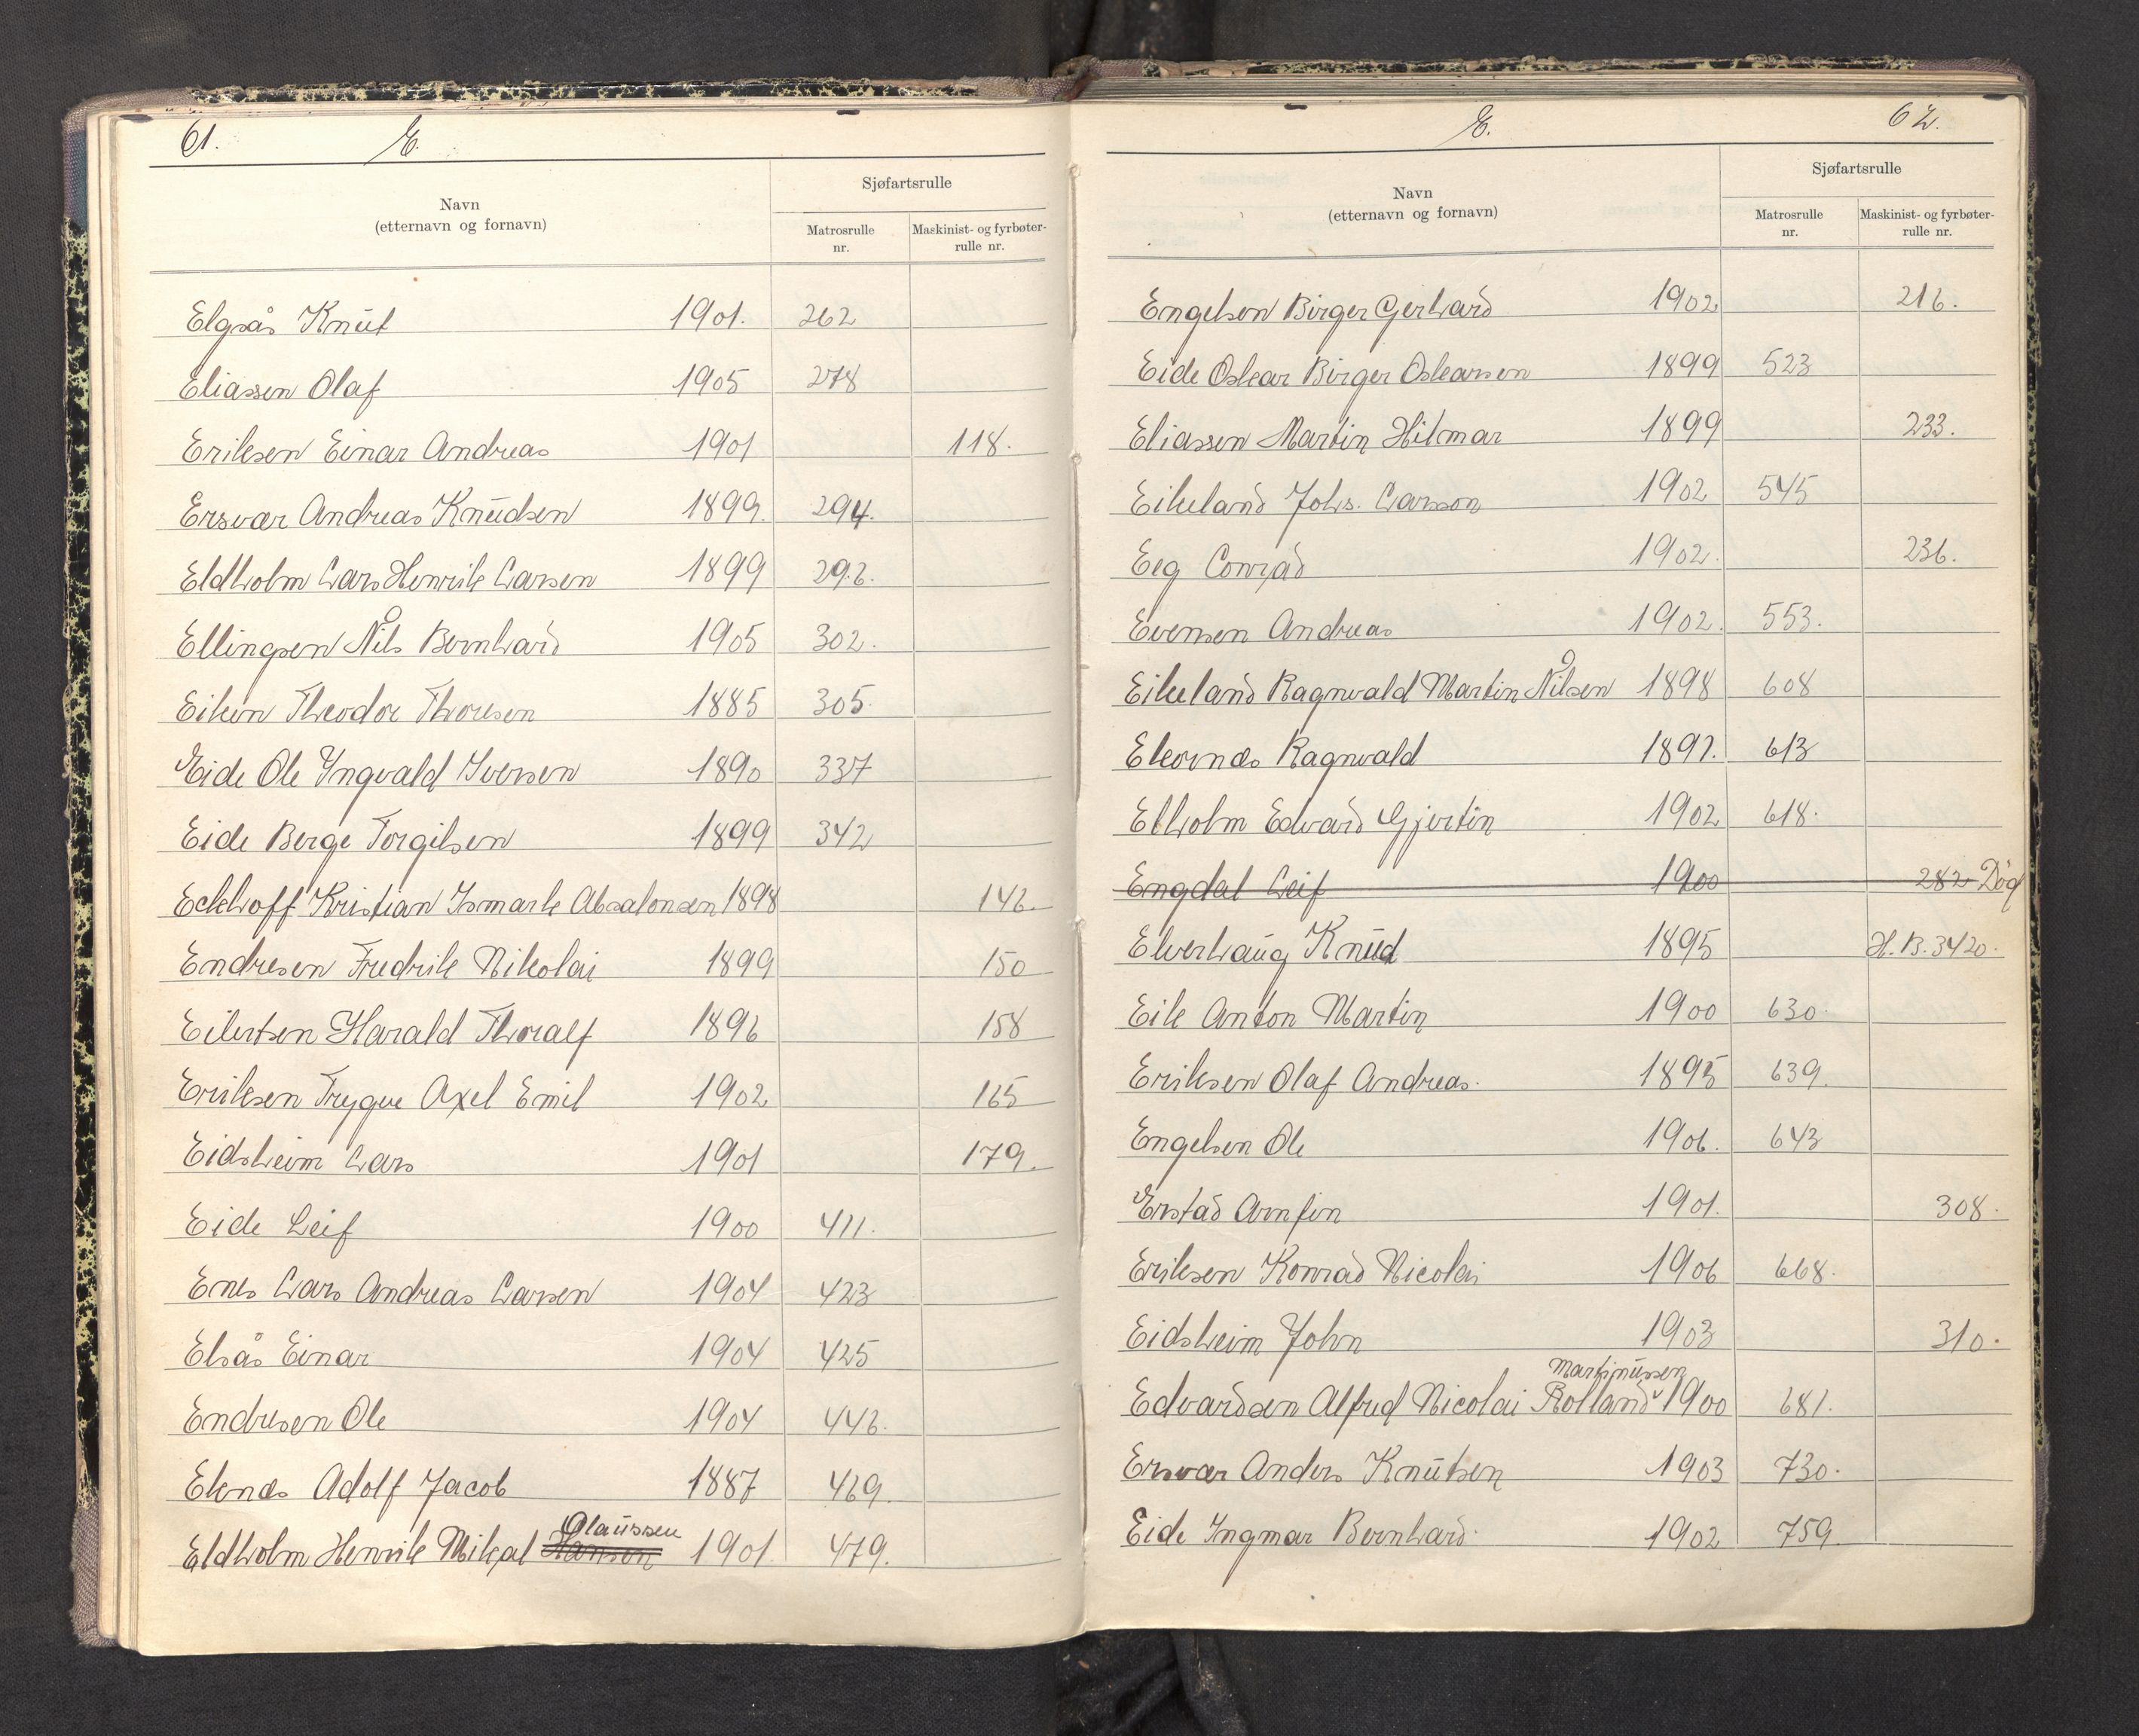 61. E.
Navn
(etternavn og fornavn)
Sjøfartsrulle
Matrosrulle
nr.
Maskinist- og fyrbøter-
rulle nr.
Elgsås Knut 1901. 262
Eliassen Olaf 1905 278
Eriksen Einar Andreas 1901 118.
Ersvær Andreas Knudsen 1899. 294.
Eldholm Lars Henrik Larsen 1899 296.
Ellingsen Nils Bernhard 1905 302.
Eiken Theodor Thoresen 1885 305.
Eide Ole Yngvald Iversen 1890 337
Eide Berge Torgilsen 1899 342
Eckhoff Kristian Ismark Absalonsen 1898 146.
Endresen Fredrik Nikolai 1899 150
Eilertsen Harald Thoralf 1896 158
Eriksen Trygve Axel Emil 1902 165
Eidsheim Lars 1901 179.
Eide Leif 1900 411.
Enes Lars Andreas Larsen 1904 423
Elsås Einar 1904 425
Endresen Ole 1904 446.
Eknes Adolf Jacob 1887 469.
Olaussen
Eldholm Henrik Mikal Hansen 1901. 479.
E. 62.
Navn
(etternavn og fornavn)
Sjøfartsrulle
Matrosrulle
nr.
Maskinist- og fyrbøter-
rulle nr.
Engelsen Birger Gerhard 1902 216.
Eide Oskar Birger Oskarsen 1899 523
Eliassen Martin Hilmar 1899 233.
Eikeland Johs. Larsson 1902 545
Eeg Conrad 1902. 236.
Evensen Andreas 1902. 553.
Eikeland Ragnvald Martin Nilsen 1898 608
Ekornæs Ragnvald 1897. 613
Elholm Edvard Gjertin 1902 618.
Engdal Leif 1900 282 Död
Elverhaug Knud 1895 H.B. 3420.
Eik Anton Martin 1900 630.
Eriksen Olaf Andreas. 1895 639.
Engelsen Ole 1906. 643
Erstad Arnfin 1901. 308.
Eriksen Konrad Nicolai 1906 668.
Eidsheim John 1903 310.
Martinussen
Edvardsen Alfred Nicolai Rolland v 1900 681.
Ersvær Anders Knutsen 1903 730.
Eide Ingmar Bernhard. 1902 759.